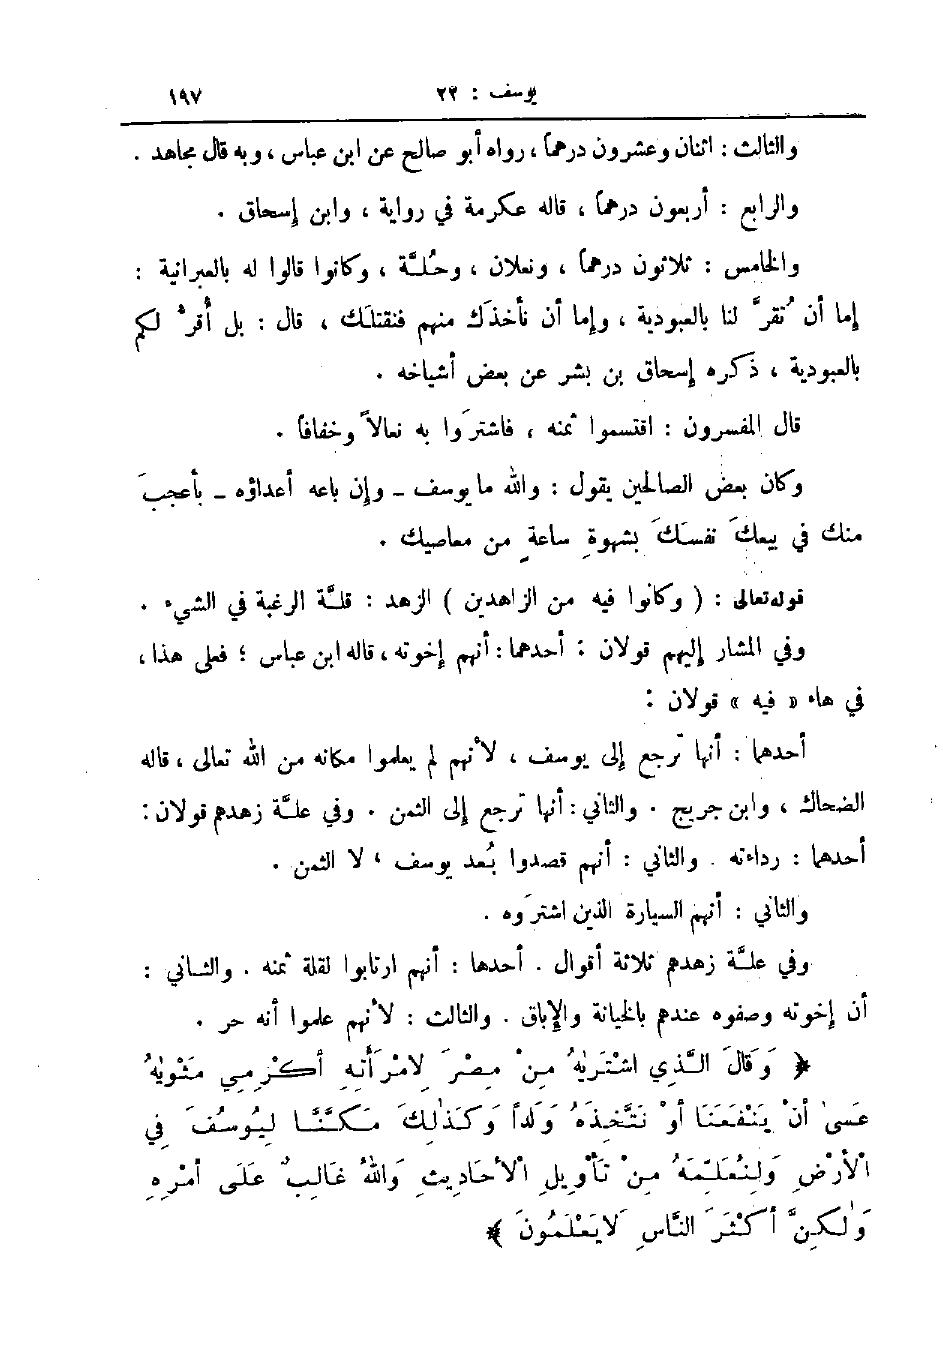 يوسف : ٢٢ ١٩٧
والثالث : اثنان وعشرون درهماً ، رواه أبو صالح عن ابن عباس ، وبه قال مجاهد .
والرابع : أربعون درهماً ، قاله عكرمة في رواية ، وابن إسحاق .
والخامس : ثلاثون درهماً ، ونعلان ، وحُلَّة ، وكانوا قالوا له بالعبرانية :
إما أن تُقرَّ لنا بالعبودية ، وإما أن نأخذَك منهم فنقتلَك ، قال : بل أُقرُّ لكم
بالعبودية ، ذكره إسحاق بن بشر عن بعض أشياخه .
قال المفسرون : اقتسموا ثمنه ، فاشترَوا به نعالاً وخفافاً .
وكان بعض الصالحين يقول : والله ما يوسف ـ وإن باعه أعداؤه ـ بأعجبَ
منك في بيعكَ نفسَكَ بشهوةِ ساعةٍ من معاصيك .
قوله تعالى : ( وكانوا فيه من الزاهدين ) الزهد : قلَّة الرغبة في الشيء .
وفي المشار إليهم قولان : أحدهما : أنهم إخوته ، قاله ابن عباس ؛ فعلى هذا ،
في هاء « فيه » قولان :
أحدهما : أنها ترجع إلى يوسف ، لأنهم لم يعلموا مكانه من الله تعالى ، قاله
الضحاك ، وابن جريج . والثاني : أنها ترجع إلى الثمن . وفي علَّة زهدهم قولان :
أحدهما : رداءته . والثاني : أنهم قصدوا بُعد يوسف ، لا الثمن .
والثاني : أنهم السيارة الذين اشترَوه .
وفي علَّة زهدهم ثلاثة أقوال . أحدها : أنهم ارتابوا لقلة ثمنه . والثاني :
أن إخوته وصفوه عندهم بالخيانة والإباق . والثالث : لأنهم علموا أنه حر .
﴿ وَقَالَ الَّذِي اشْتَرٰيهُ مِنْ مِصْرَ لِامْرَأَتِهِ أَكْرِمِي مَثْوٰيهُ
عَسىٰ أَنْ يَنْفَعَنَا أَوْ نَتَّخِذَهُ وَلَداً وَكَذٰلِكَ مَكَّنَّا لِيُوسُفَ فِي
الْأَرْضِ وَلِنُعَلِّمَهُ مِنْ تَأْوِيلِ الْأَحَادِيثِ وَاللهُ غَالِبٌ عَلَى أَمْرِهِ
وَلٰكِنَّ أَكْثَرَ النَّاسِ لَا يَعْلَمُونَ ﴾